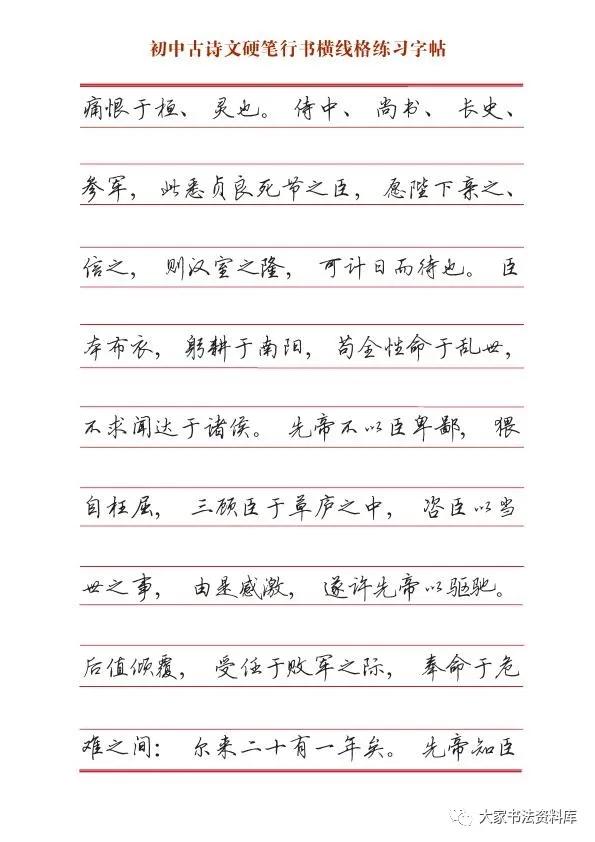 初中古诗文硬笔行书横线格练习字帖
痛恨于桓、灵也。侍中、尚书、长史、
参军，此悉贞良死节之臣，愿陛下亲之、
信之，则汉室之隆，可计日而待也。臣
本布衣，躬耕于南阳，苟全性命于乱世，
不求闻达于诸侯。先帝不以臣卑鄙，猥
自枉屈，三顾臣于草庐之中，咨臣以当
世之事，由是感激，遂许先帝以驱驰。
后值倾覆，受任于败军之际，奉命于危
难之间：尔来二十有一年矣。先帝知臣
大家书法资料库